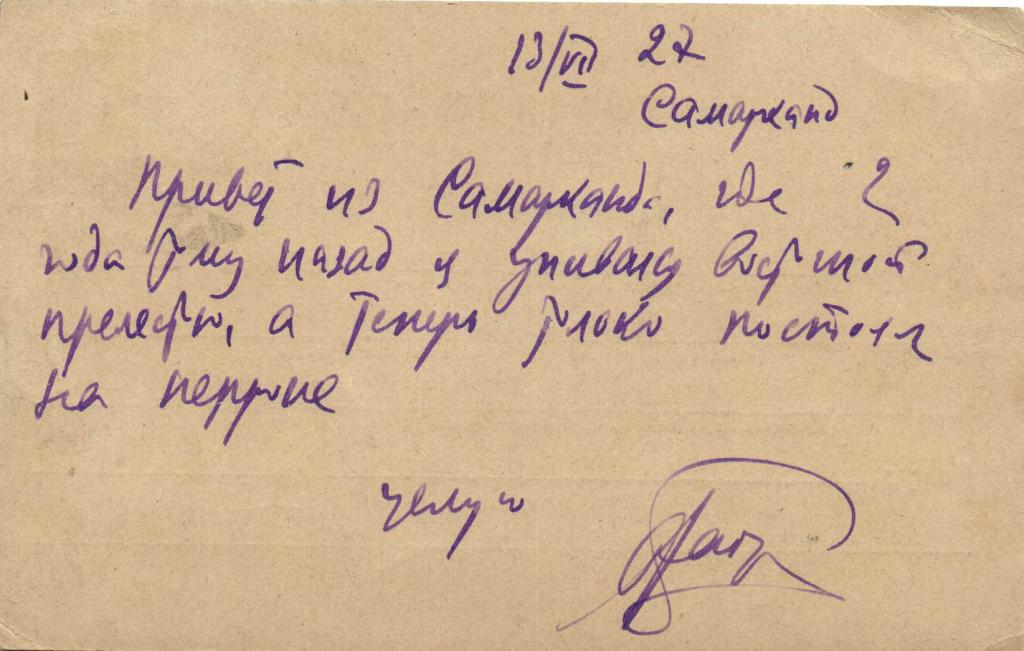 13/VII 27
Самарканд
Привет из Самарканда, где 2
года тому назад я упивался восточной
прелестью, а теперь только постоял
на перроне
целую